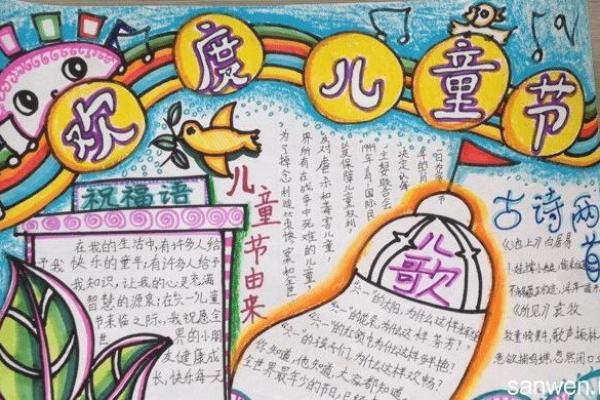 欢度儿童节
祝福语
在我的生活中,有许多人给
予我快乐的童年,有许多人给予
我知识,让我的心灵充满
智慧的源泉,在六一儿童
节来临之际,我祝愿全
世界的小朋
友健康成
长,快乐每一天
儿童节由来
为了悼念利迪策惨案和全世
界所有在战争中死难的儿童,
反对虐杀和毒害儿童,
以及保障儿童权利
1949年11月国际民
主妇女联合会
决定以每
年的六月
一日为
节
儿歌
六一的太阳,为什么这样
六一的
六一的
六一的孩子们,为什么这样欢畅?
你知道,他知道,大家都知道
全世界最年少的节日,
古诗两首
《池上》白居易
小娃撑小艇,偷采白莲
不解藏踪迹,浮萍一道开
《所见》袁枚
牧童骑黄牛,歌声振林
意欲捕鸣蝉,忽然闭口立
sanwen.n